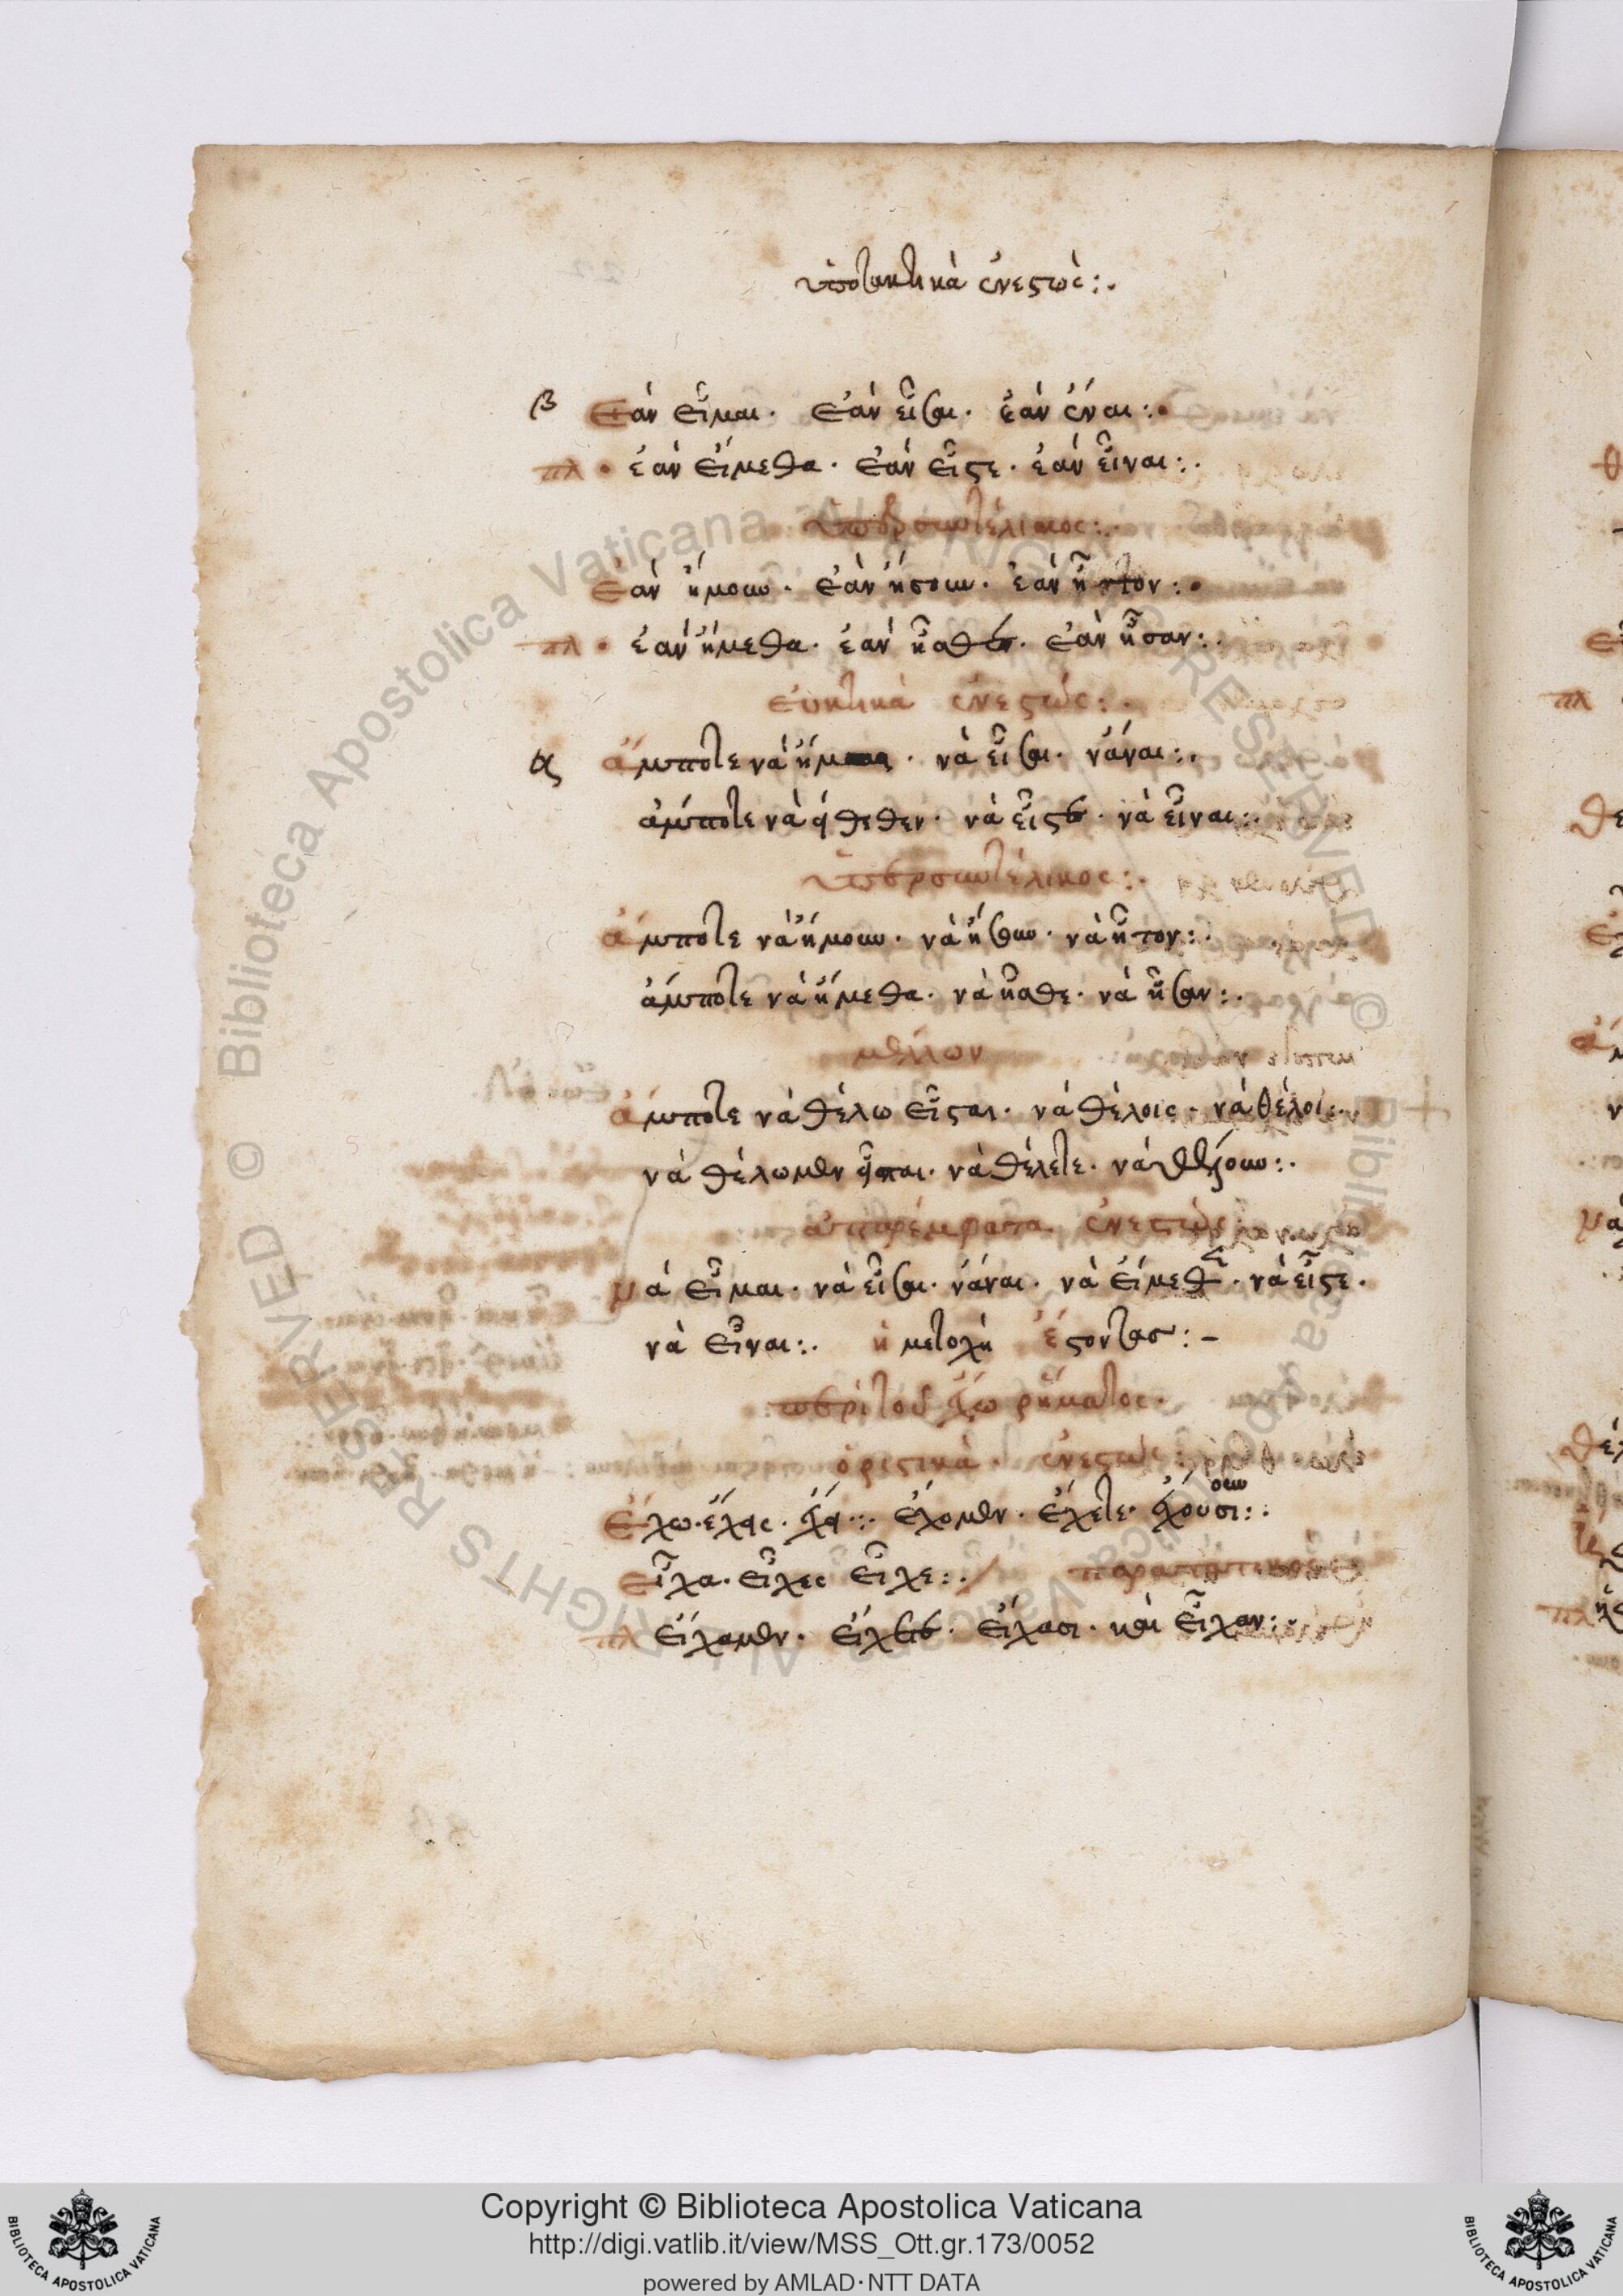 ὑποτακτικὰ ἐνεστώς:.
β ἐὰν εἶμαι· ἐὰν εἶσαι· ἐὰν ἔναι:·
πλ · ἐὰν εἴμεθα· ἐὰν εἶστε· ἐὰν εἶναι:·
ὑπερσυντέλικος:·
ἐὰν ἤμουν· ἐὰν ἤσουν· ἐὰν ἦτον:·
πλ · ἐὰν ἤμεθα· ἐὰν ἦσθε· ἐὰν ἦσαν:·
εὐκτικὰ ἐνεστώς:·
α ἄμποτε νὰ · νὰ εἶσαι· νἄναι:·
ἄμποτε νὰ · νὰ εἶστε· νὰ εἶναι:·
ὑπερσυντέλικος:·
ἄμποτε νὰ ἤμουν· νὰ ἤσουν· νὰ ἦτον:·
ἄμποτε νὰ ἤμεθα· νὰ ἦσθε· νὰ ἦσαν:·
μέλλων
ἄμποτε νὰ θέλω εἶσται· νὰ θέλοις· νὰ θέλοι:·
νὰ θέλωμεν · νὰ θέλετε· νὰ :·
ἀπαρέμφατα ἐνεστώς
νὰ εἶμαι· νὰ εἶσαι· νἄναι· νὰ εἴμεθα· νὰ εἶστε·
νὰ εἶναι:· ἡ μετοχὴ ἔστοντας:-
περὶ τοῦ ἔχω ῥήματος·
ὁριστικὰ· ἐνεστώς:
ἔχω· ἔχης· ἔχη:· ἔχομεν· ἔχετε· ἔχουσι:·
ουν
εἶχα· εἶχες εἶχε:· παρατατικὸς
πλ εἴχαμεν· εἴχετε· εἴχασι· καὶ εἶχαν:·
Copyright © Biblioteca Apostolica Vaticana
http://digi.vatlib.it/view/MSS_Ott.gr.173/0052
powered by AMLAD·NTT DATA
BIBLIOTECA APOSTOLICA VATICANA
BIBLIOTECA APOSTOLICA VATICANA